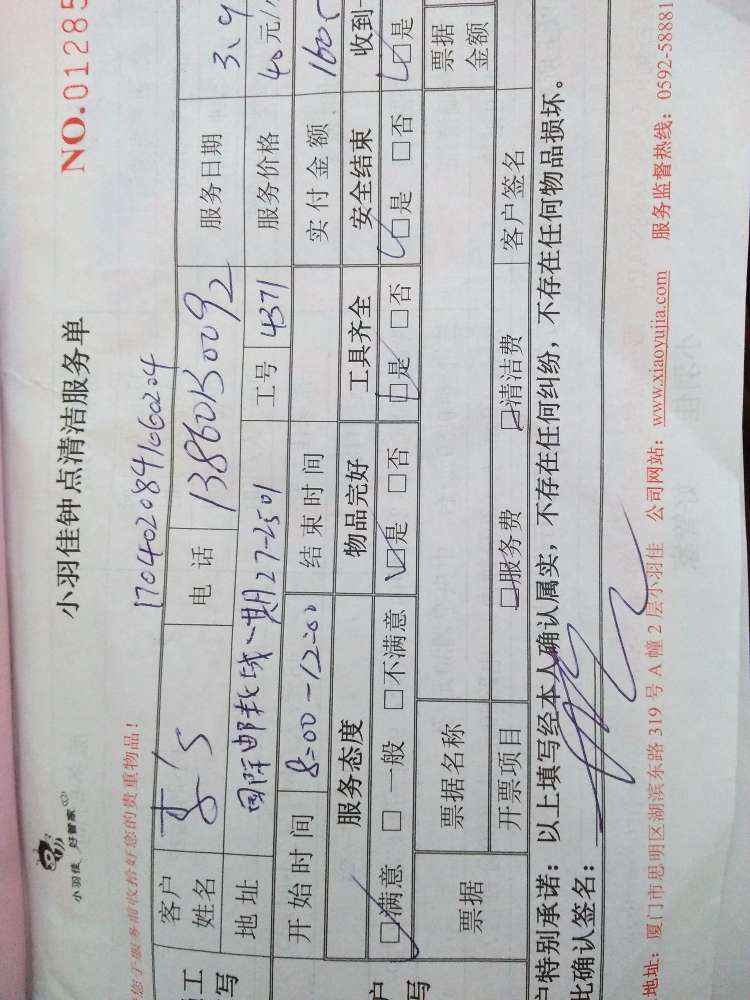 小羽佳 好管家
小羽佳钟点清洁服务单
NO.01285
您于服务前收拾好您的贵重物品!
1704020841660204
客户姓名 李's 电话 13860130092 服务日期 3、9
地址 国际邮轮城一期27-2501 工号 4371 服务价格 40元/
开始时间 8:00-12:00 结束时间 实付金额 160
服务态度 物品完好 工具齐全 安全结束 收到
□满意 □一般 □不满意 □是 □否 □是 □否 □是 □否 □是
票据 票据名称 票据金额
开票项目 □服务费 □清洁费 客户签名
户特别承诺:以上填写经本人确认属实,不存在任何纠纷,不存在任何物品损坏。
此确认签名:
地址:厦门市思明区湖滨东路319号A幢2层小羽佳 公司网站:www.xiaoyujia.com 服务监督热线:0592-58881